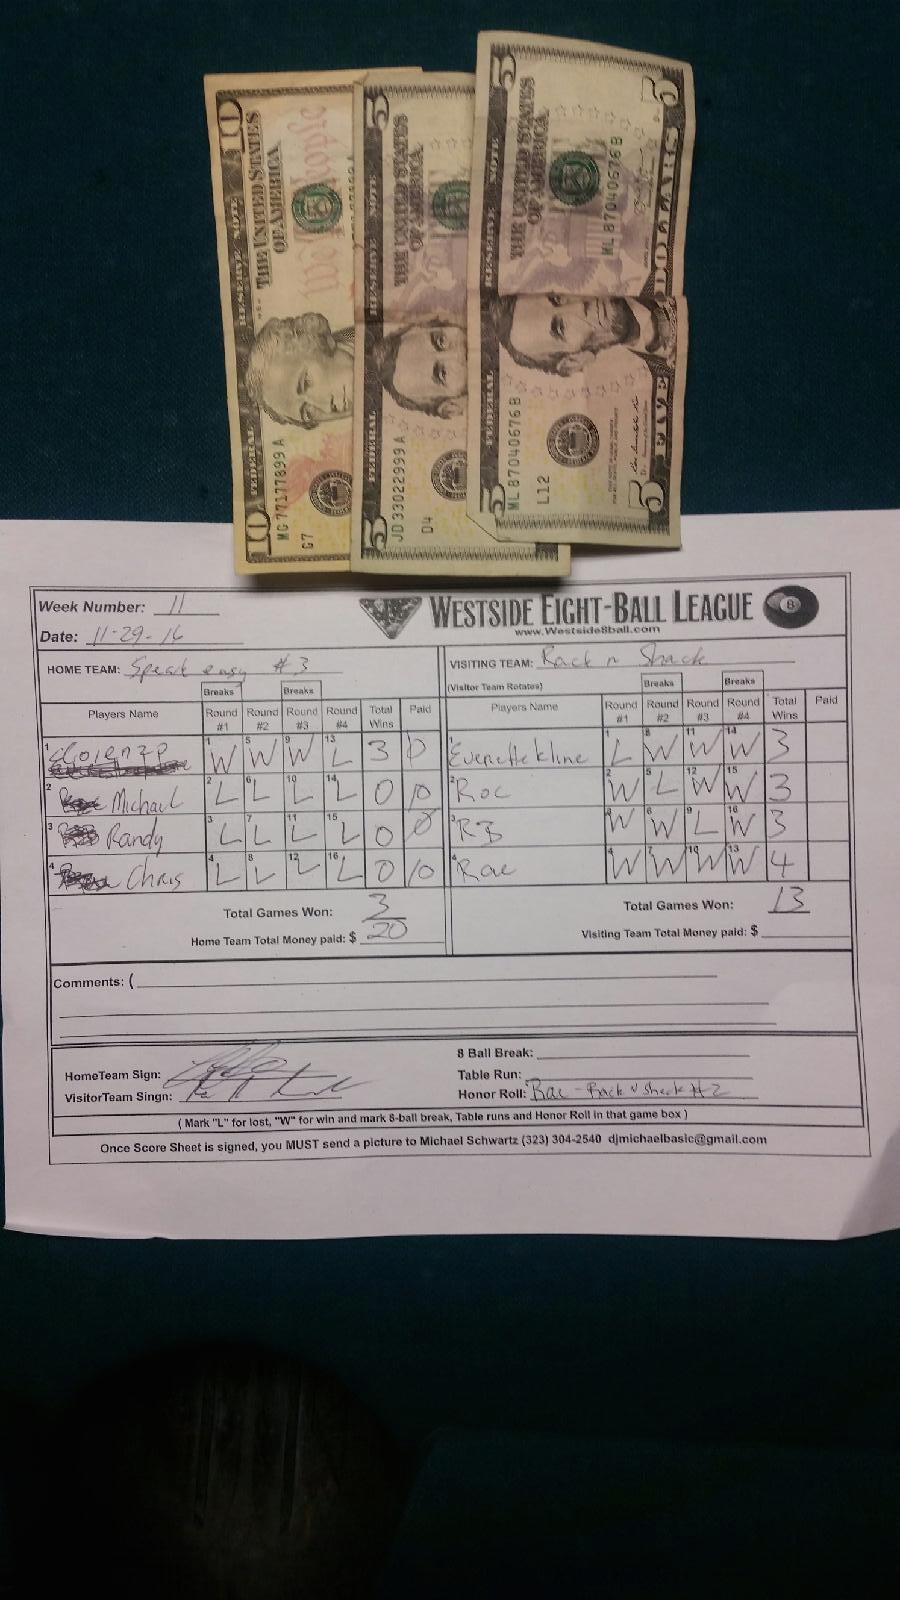 10 FEDERAL RESERVE NOTE 10
THE UNITED STATES
OF AMERICA
We the People
MG 77177899 A
G7
5 FEDERAL RESERVE NOTE 5
THE UNITED STATES
OF AMERICA
JD 33022999 A
D4
5 FEDERAL RESERVE NOTE 5
THE UNITED STATES
OF AMERICA
ML 87040676 B
ML 87040676 B
L12
5 FIVE DOLLARS 5
Week Number: 11
Date: 11-29-16
WESTSIDE EIGHT-BALL LEAGUE 8
www.Westside8ball.com
HOME TEAM: Speak easy #3 VISITING TEAM: Rack n Shack
(Visitor Team Rotates)
Breaks Breaks Breaks Breaks
Players Name Round #1 Round #2 Round #3 Round #4 Total Wins Paid Players Name Round #1 Round #2 Round #3 Round #4 Total Wins Paid
1 1 W 5 W 9 W 13 L 3 0 1 Everette Kline 1 L 8 W 11 W 14 W 3
2 Michael 2 L 6 L 10 L 14 L 0 10 2 Roc 2 W 5 L 12 W 15 W 3
3 Randy 3 L 7 L 11 L 15 L 0 0 3 RB 3 W 6 W 9 L 16 W 3
4 Chris 4 L 8 L 12 L 16 L 0 10 4 Rae 4 W 7 W 10 W 13 W 4
Total Games Won: 3 Total Games Won: 13
Home Team Total Money paid: $ 20 Visiting Team Total Money paid: $
Comments: (
8 Ball Break:
HomeTeam Sign: Table Run:
VisitorTeam Singn: Honor Roll: Rae - Rack n Shack #2
( Mark "L" for lost, "W" for win and mark 8-ball break, Table runs and Honor Roll in that game box )
Once Score Sheet is signed, you MUST send a picture to Michael Schwartz (323) 304-2540 djmichaelbasic@gmail.com